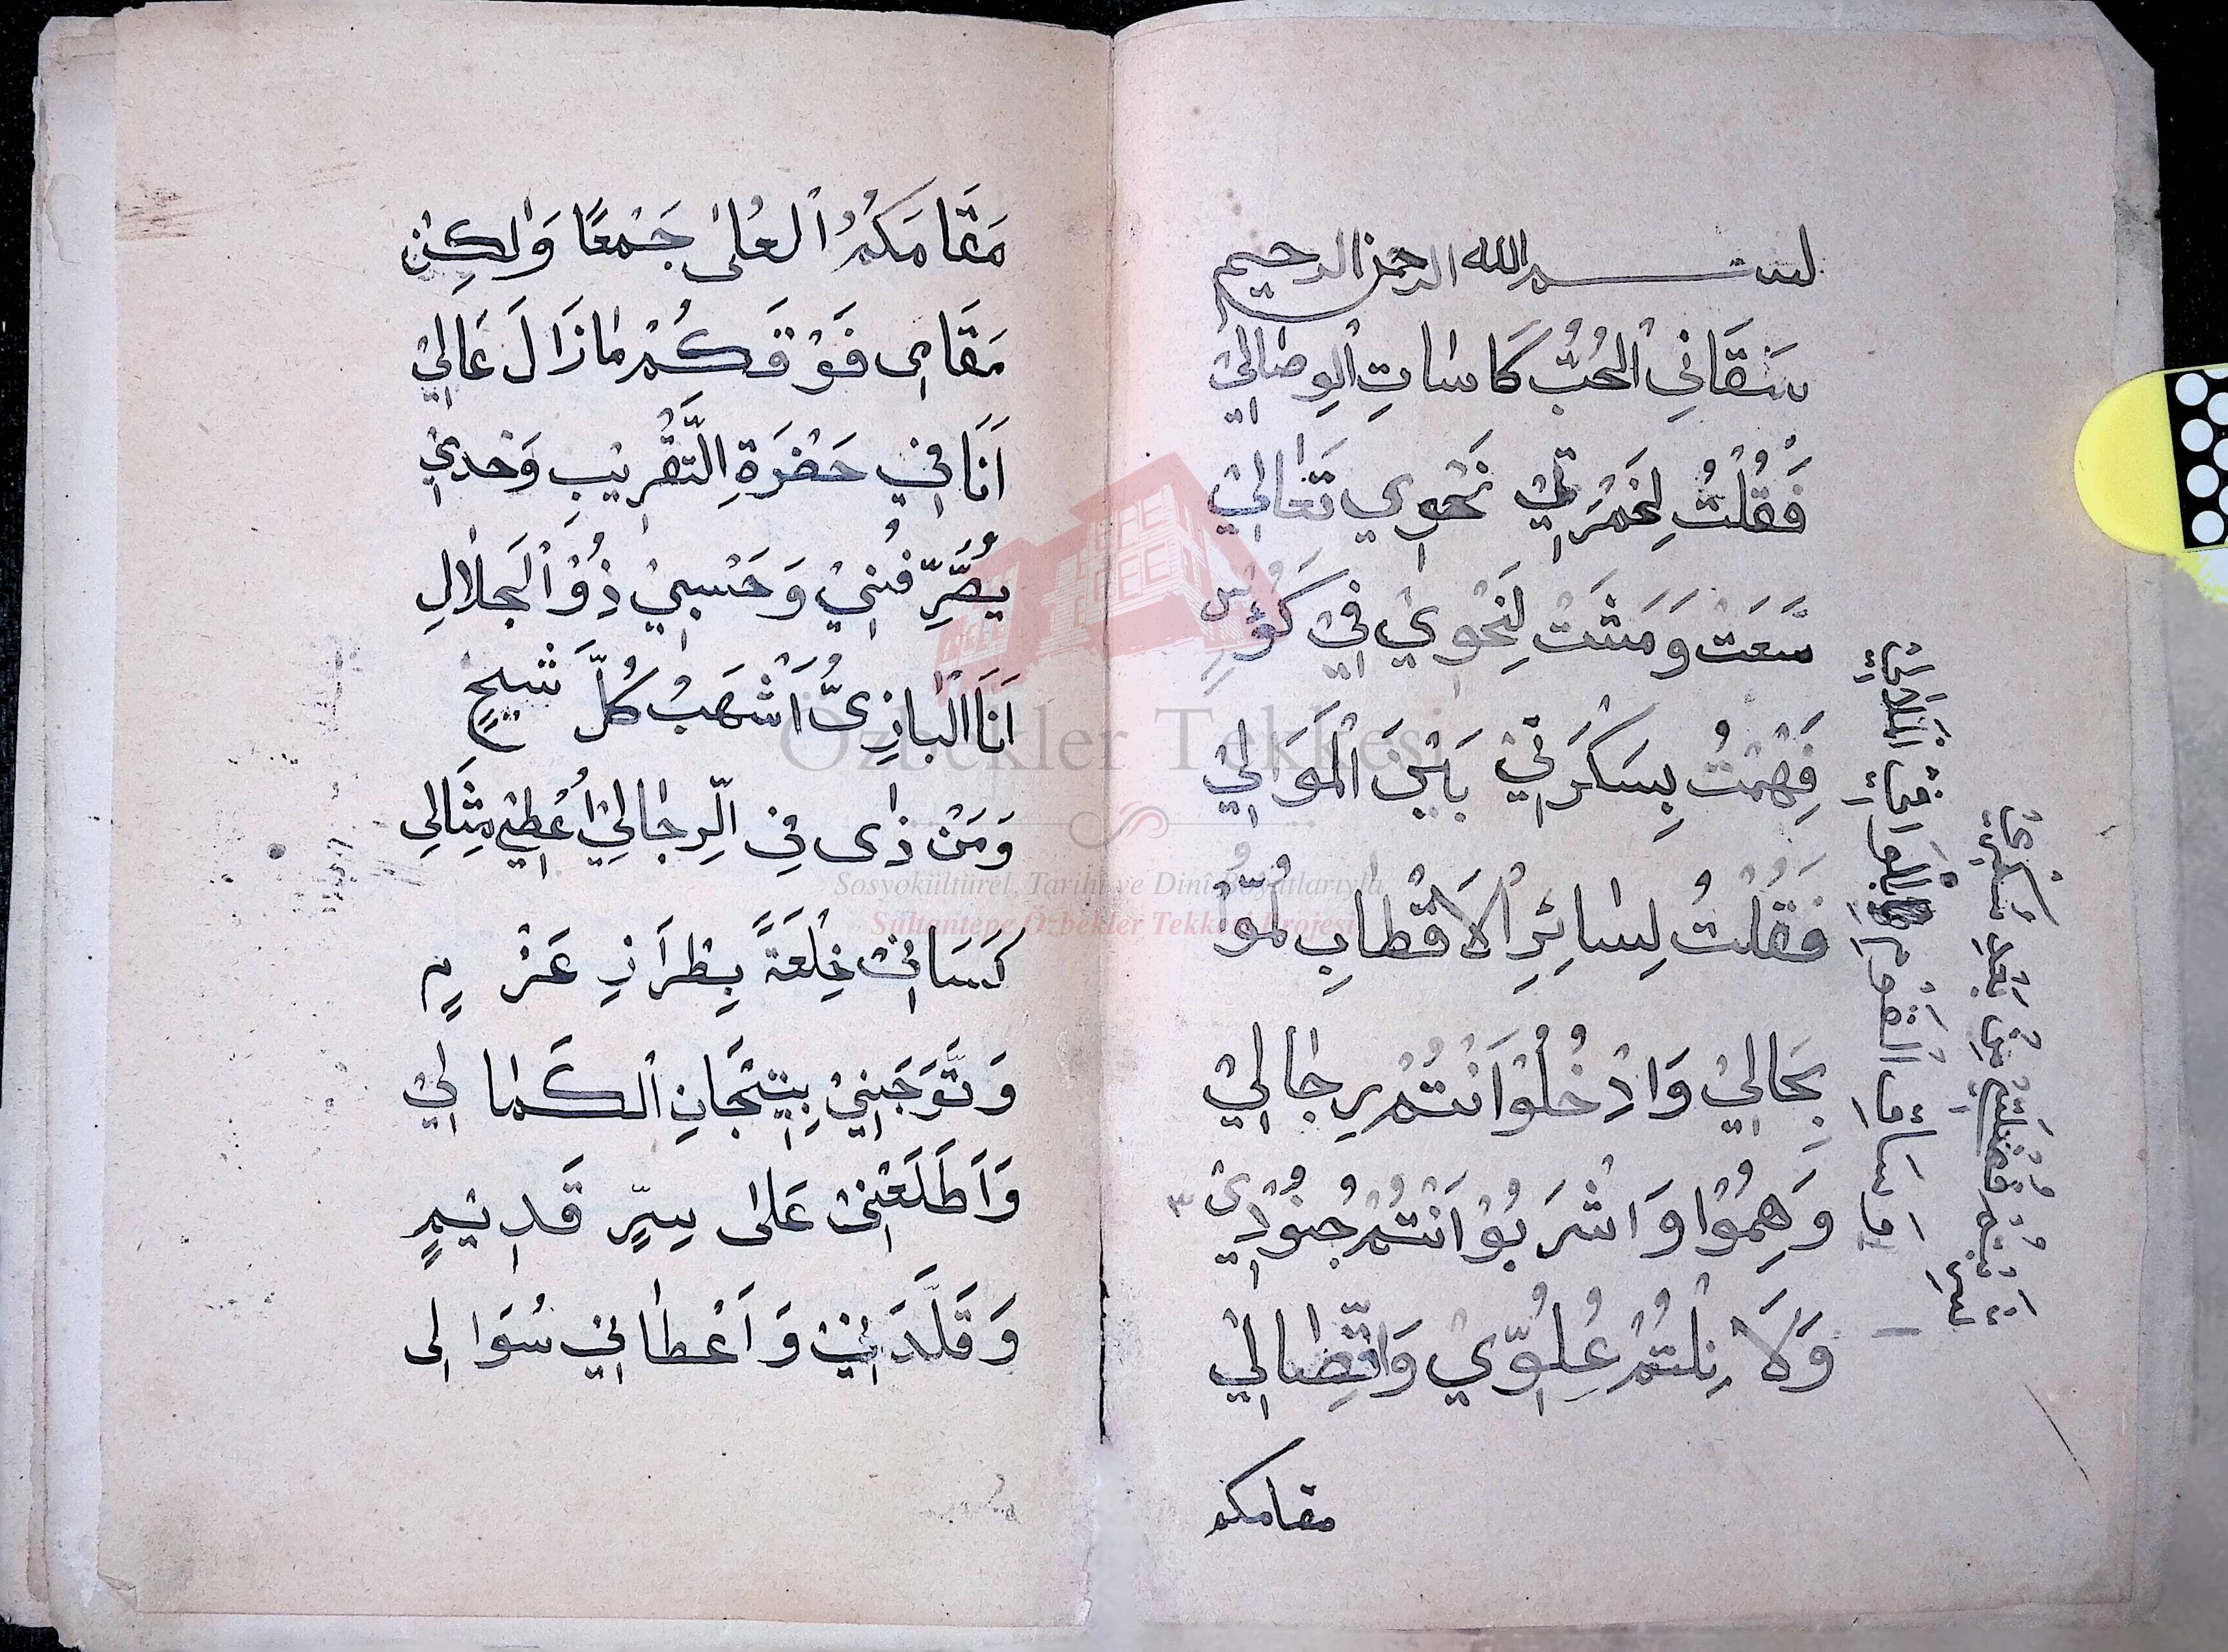 بسم الله الرحمن الرحيم
سَقَانِي الْحُبُّ كَاسَاتِ الْوِصَالِيْ
فَقُلْتُ لِخَمْرَتِيْ نَحْوِي تَعَالِيْ
سَعَتْ وَمَشَتْ لِنَحْوِيْ فِيْ كُؤُسٍ
فَهِمْتُ بِسَكْرَتِيْ بَيْنَ الْمَوَالِيْ
فَقُلْتُ لِسَائِرِ الْاَقْطَابِ لُمُّوْ
بِحَالِيْ وَادْخُلُوْا اَنْتُمْ رِجَالِيْ
وَهِمُوْا وَاشْرَبُوْا اَنْتُمْ جُنُوْدِيْ ٣
وَلَا نِلْتُمْ عُلُوِّيْ وَاتِّصَالِيْ
مقامكم
شَرِبْتُمْ فَضْلَتِيْ مِنْ بَعْدِ سُكْرِيْ
مَقَامَكُمُ الْعُلٰى جَمْعًا وَلٰكِنْ
مَقَامِى فَوْقَكُمْ مَازَالَ عَالِيْ
اَنَا فِيْ حَضْرَةِ التَّقْرِيْبِ وَحْدِيْ
يُصَرِّفُنِيْ وَحَسْبِيْ ذُوْ الْجَلَالِ
اَنَا الْبَازِىُّ اَشْهَبُ كُلَّ شَيْخٍ
وَمَنْ ذٰى فِى الرِّجَالِيْ اُعْطِيَ مِثَالِى
كَسَانِيْ خِلْعَةً بِطْرَازِ عَزْمٍ
وَتَوَّجَنِيْ بِتِيْجَانِ الْكَمَالِيْ
وَاَطَلَعَنِيْ عَلٰى سِرٍّ قَدِيْمٍ
وَقَلَّدَنِيْ وَاَعْطَانِيْ سُوَالِى
Özbekler Tekkesi
Sosyokültürel, Tarihî ve Dinî Boyutlarıyla
Sultantepe Özbekler Tekkesi Projesi